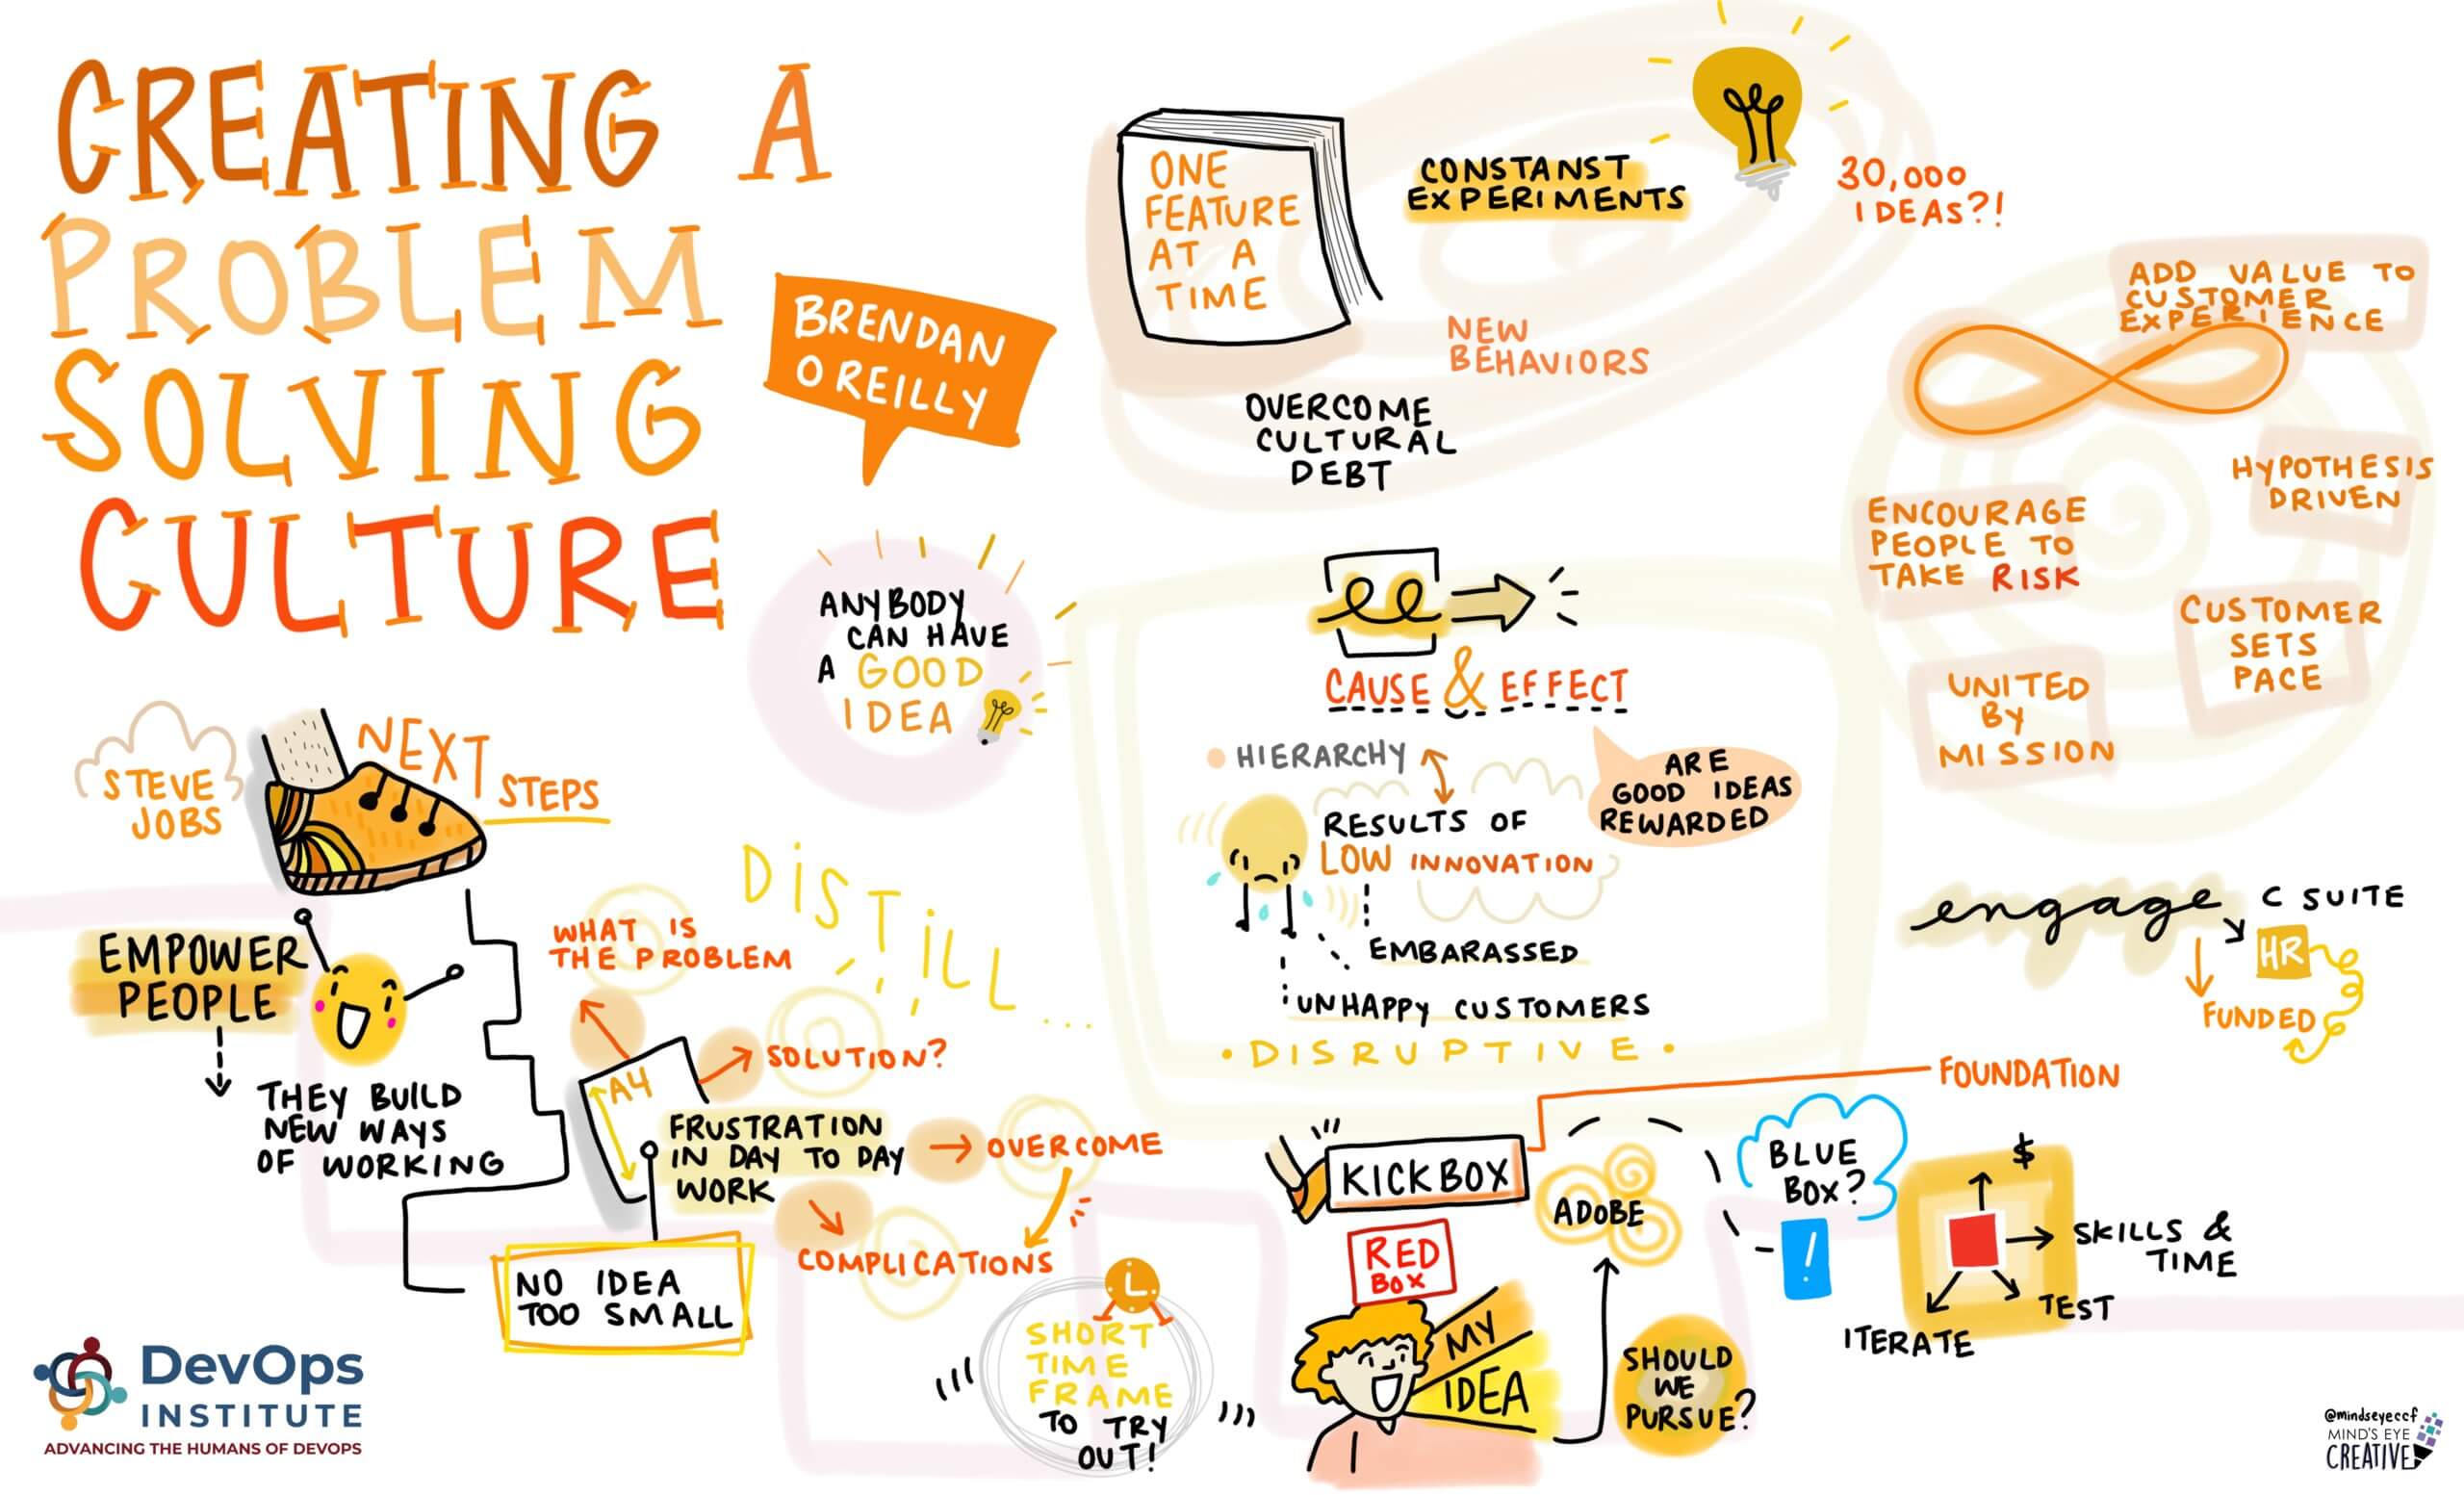 CREATING A
PROBLEM
SOLVING
CULTURE
BRENDAN
OREILLY
ONE
FEATURE
AT A
TIME
CONSTANST
EXPERIMENTS
30,000
IDEAS?!
NEW
BEHAVIORS
OVERCOME
CULTURAL
DEBT
ADD VALUE TO
CUSTOMER
EXPERIENCE
HYPOTHESIS
DRIVEN
ENCOURAGE
PEOPLE TO
TAKE RISK
CUSTOMER
SETS
PACE
UNITED
BY
MISSION
ANYBODY
CAN HAVE
A GOOD
IDEA
CAUSE & EFFECT
HIERARCHY
ARE
GOOD IDEAS
REWARDED
RESULTS OF
LOW INNOVATION
EMBARASSED
UNHAPPY CUSTOMERS
• DISRUPTIVE •
STEVE
JOBS
NEXT
STEPS
EMPOWER
PEOPLE
THEY BUILD
NEW WAYS
OF WORKING
DISTILL...
WHAT IS
THE PROBLEM
SOLUTION?
A4
FRUSTRATION
IN DAY TO DAY
WORK
OVERCOME
COMPLICATIONS
NO IDEA
TOO SMALL
SHORT
TIME
FRAME
TO TRY
OUT!
engage
C SUITE
HR
FUNDED
FOUNDATION
KICKBOX
ADOBE
RED
BOX
MY
IDEA
SHOULD
WE
PURSUE?
BLUE
BOX?
!
$
SKILLS &
TIME
TEST
ITERATE
DevOps
INSTITUTE
ADVANCING THE HUMANS OF DEVOPS
@mindseyeccf
MIND'S EYE
CREATIVE